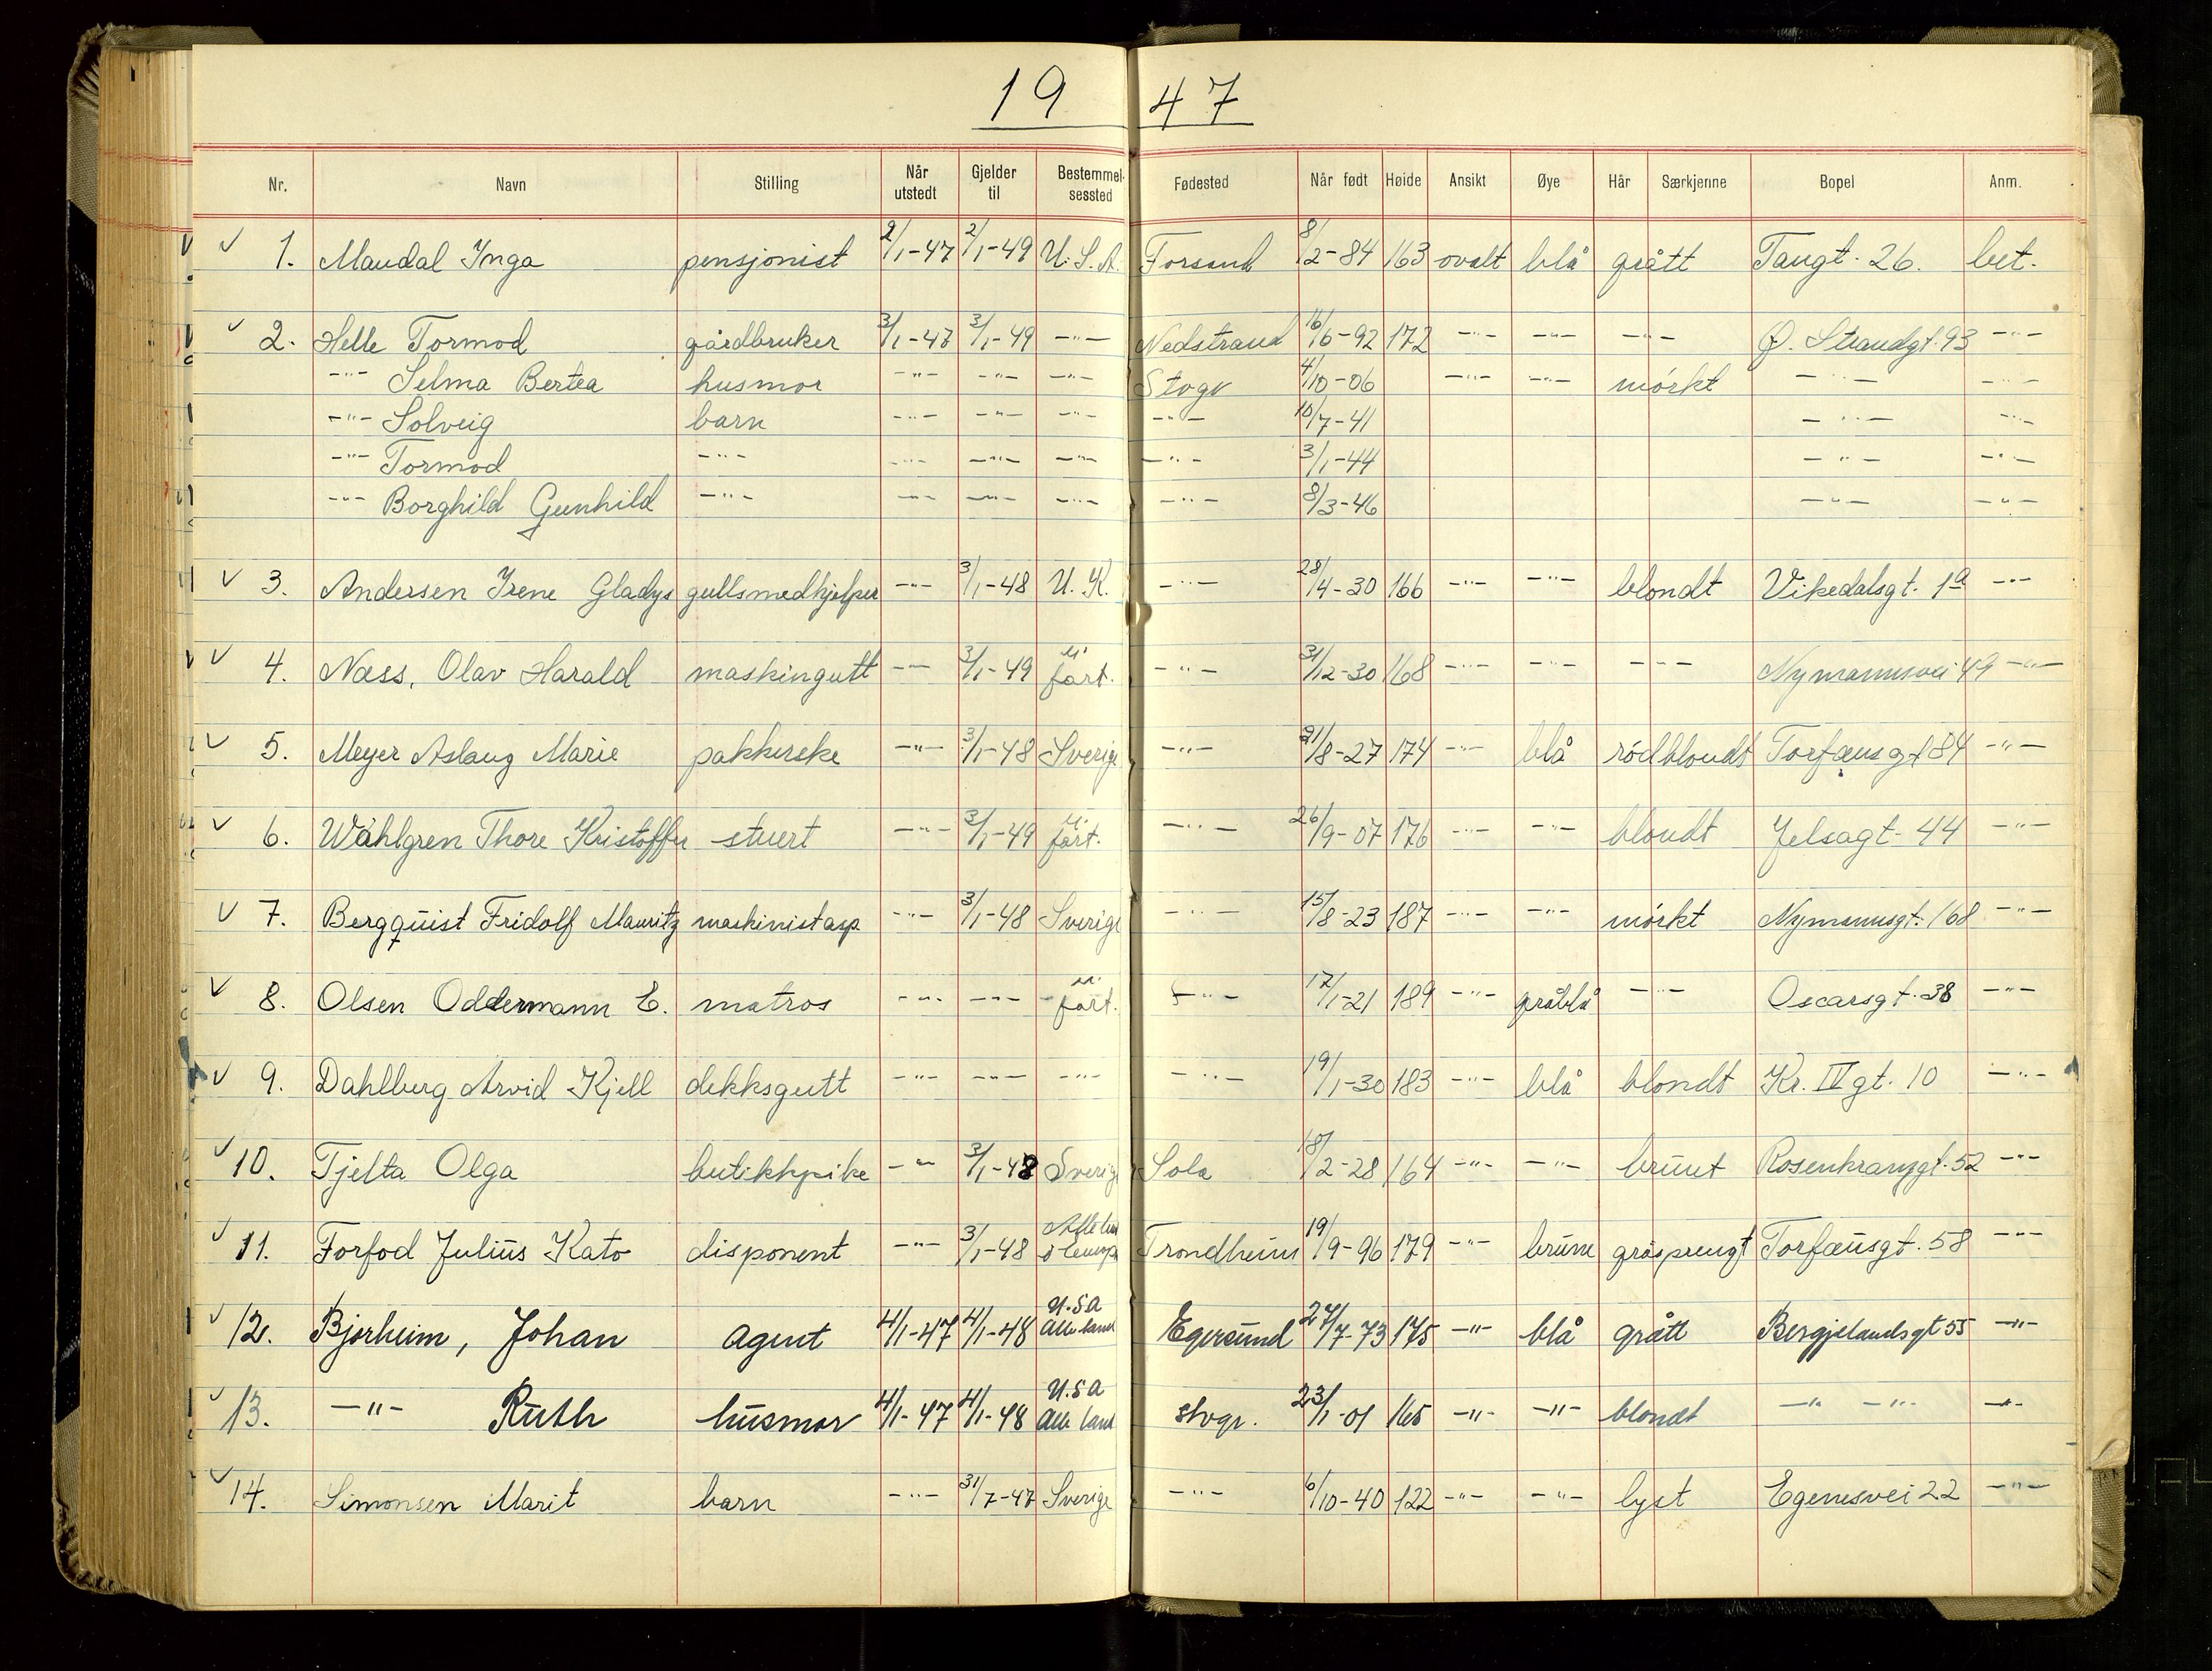 19 47
Nr. Navn Stilling Når utstedt Gjelder til Bestemmelsessted Fødested Når født Høide Ansikt Øye Hår Særkjenne Bopel Anm.
1. Maudal Inga pensjonist 2/1-47 2/1-49 U.S.A. Forsand 8/2-84 163 ovalt blå grått Taugt. 26. bet.
2. Helle Tormod gårdbruker 3/1-47 3/1-49 -"- Nedstrand 16/6-92 172 -"- -"- -"- Ø. Strandgt. 93 -"-
-"- Selma Bertea husmor -"- -"- -"- Stvgr 4/10-06 -"- -"- mørkt -"- -"-
-"- Solveig barn -"- -"- -"- -"- 10/7-41 -"- -"-
-"- Tormod -"- -"- -"- -"- -"- 3/1-44 -"- -"-
-"- Borghild Gunhild -"- -"- -"- -"- -"- 8/3-46 -"- -"-
3. Andersen Irene Gladys gullsmedhjelper -"- 3/1-48 U.K. -"- 28/4-30 166 -"- -"- blondt Vikedalsgt. 1a -"-
4. Næss, Olav Harald maskingutt -"- 3/1-49 u. fart. -"- 31/12-30 168 -"- -"- -"- Nymannsvei 49 -"-
5. Meyer Aslaug Marie pakkerske -"- 3/1-48 Sverige -"- 21/8-27 174 -"- blå rødblondt Torfæusgt 84 -"-
6. Wåhlgren Thore Kristoffer stuert -"- 3/1-49 u. fart. -"- 26/9-07 176 -"- -"- blondt Jelsagt. 44 -"-
7. Bergquist Fridolf Mauritz maskinistasp. -"- 3/1-48 Sverige -"- 15/8-23 187 -"- -"- mørkt Nymannsgt. 168 -"-
8. Olsen Oddermann E. matros -"- -"- u. fart. -"- 17/1-21 189 -"- gråblå -"- Oscarsgt. 38 -"-
9. Dahlberg Arvid Kjell dekksgutt -"- -"- -"- -"- 19/1-30 183 -"- blå blondt Kr. IV gt. 10 -"-
10. Tjelta Olga butikkpike -"- 3/1-48 Sverige Sola 18/2-28 164 -"- -"- brunt Rosenkranzgt. 52 -"-
11. Forfod Julius Kato disponent -"- 3/1-48 Alle Trondheim 19/9-96 179 -"- brune gråsprengt Torfæusgt. 58 -"-
12. Bjørheim, Johan agent 4/1-47 4/1-48 U.S.A Alle land Egersund 27/7-73 175 -"- blå grått Bergjelandsgt 55 -"-
13. -"- Ruth husmor 4/1-47 4/1-48 U.S.A Alle land stvgr. 23/1-01 165 -"- -"- blondt -"- -"- -"-
14. Simonsen Marit barn -"- 31/7-47 Sverige -"- 6/10-40 122 -"- -"- lyst Egenesvei 22 -"-